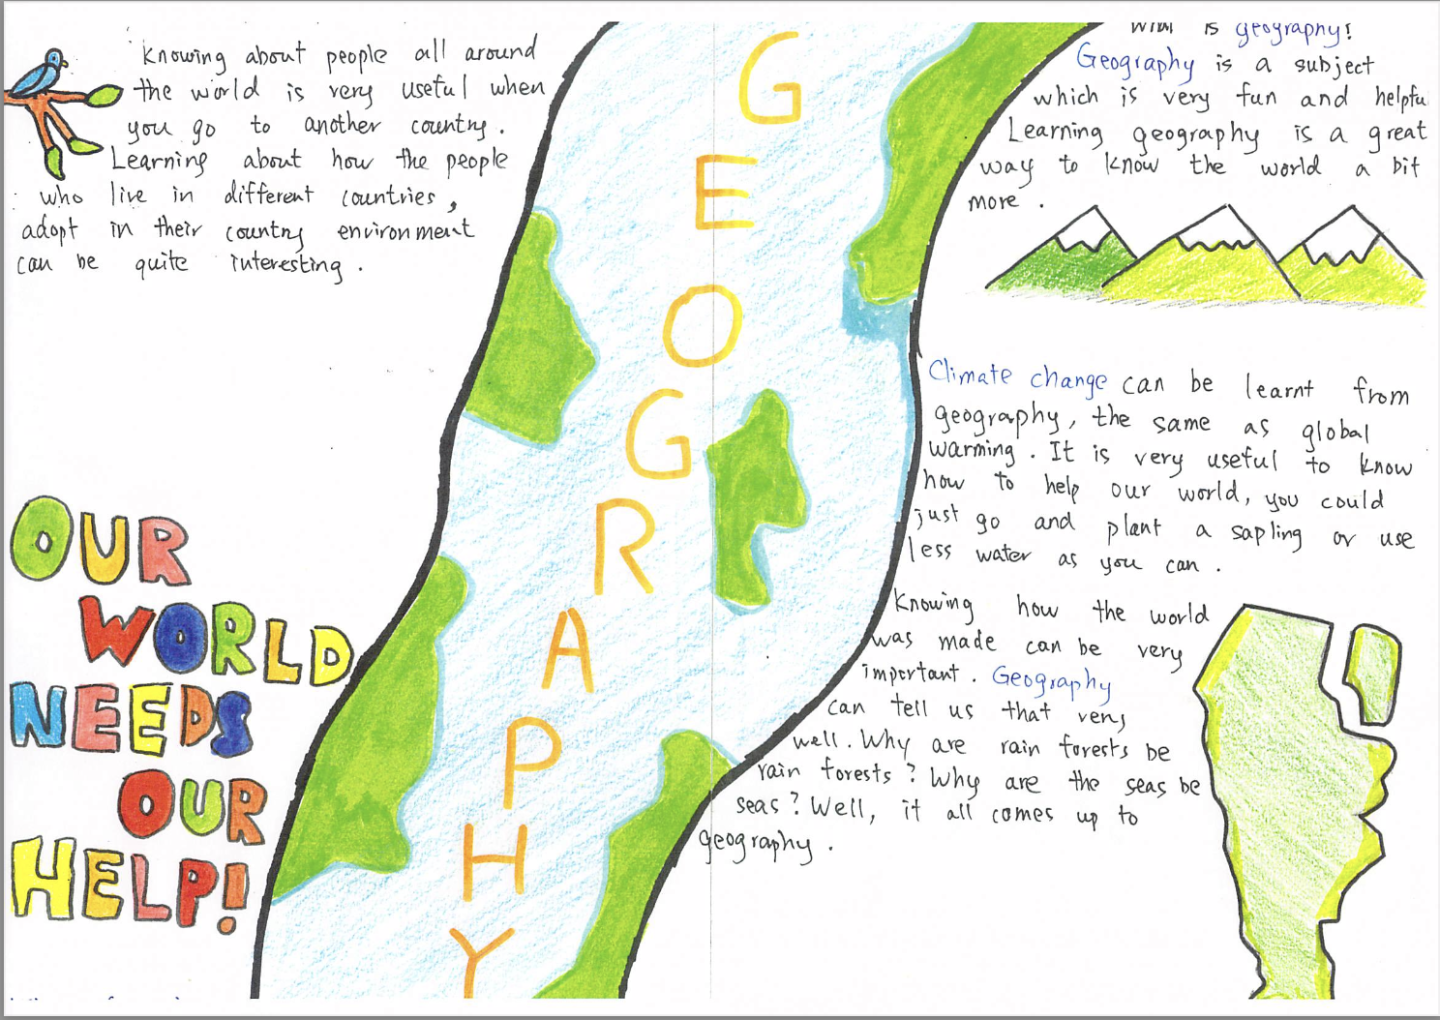 Knowing about people all around
the world is very useful when
you go to another country.
Learning about how the people
who live in different countries,
adopt in their country environment
can be quite interesting.
OUR
WORLD
NEEDS
OUR
HELP!
G
E
O
G
R
A
P
H
Y
What is geography?
Geography is a subject
which is very fun and helpfu
Learning geography is a great
way to know the world a bit
more.
Climate change can be learnt from
geography, the same as global
warming. It is very useful to know
how to help our world, you could
just go and plant a sapling or use
less water as you can.
Knowing how the world
was made can be very
important. Geography
can tell us that very
well. Why are rain forests be
rain forests? Why are the seas be
seas? Well, it all comes up to
geography.